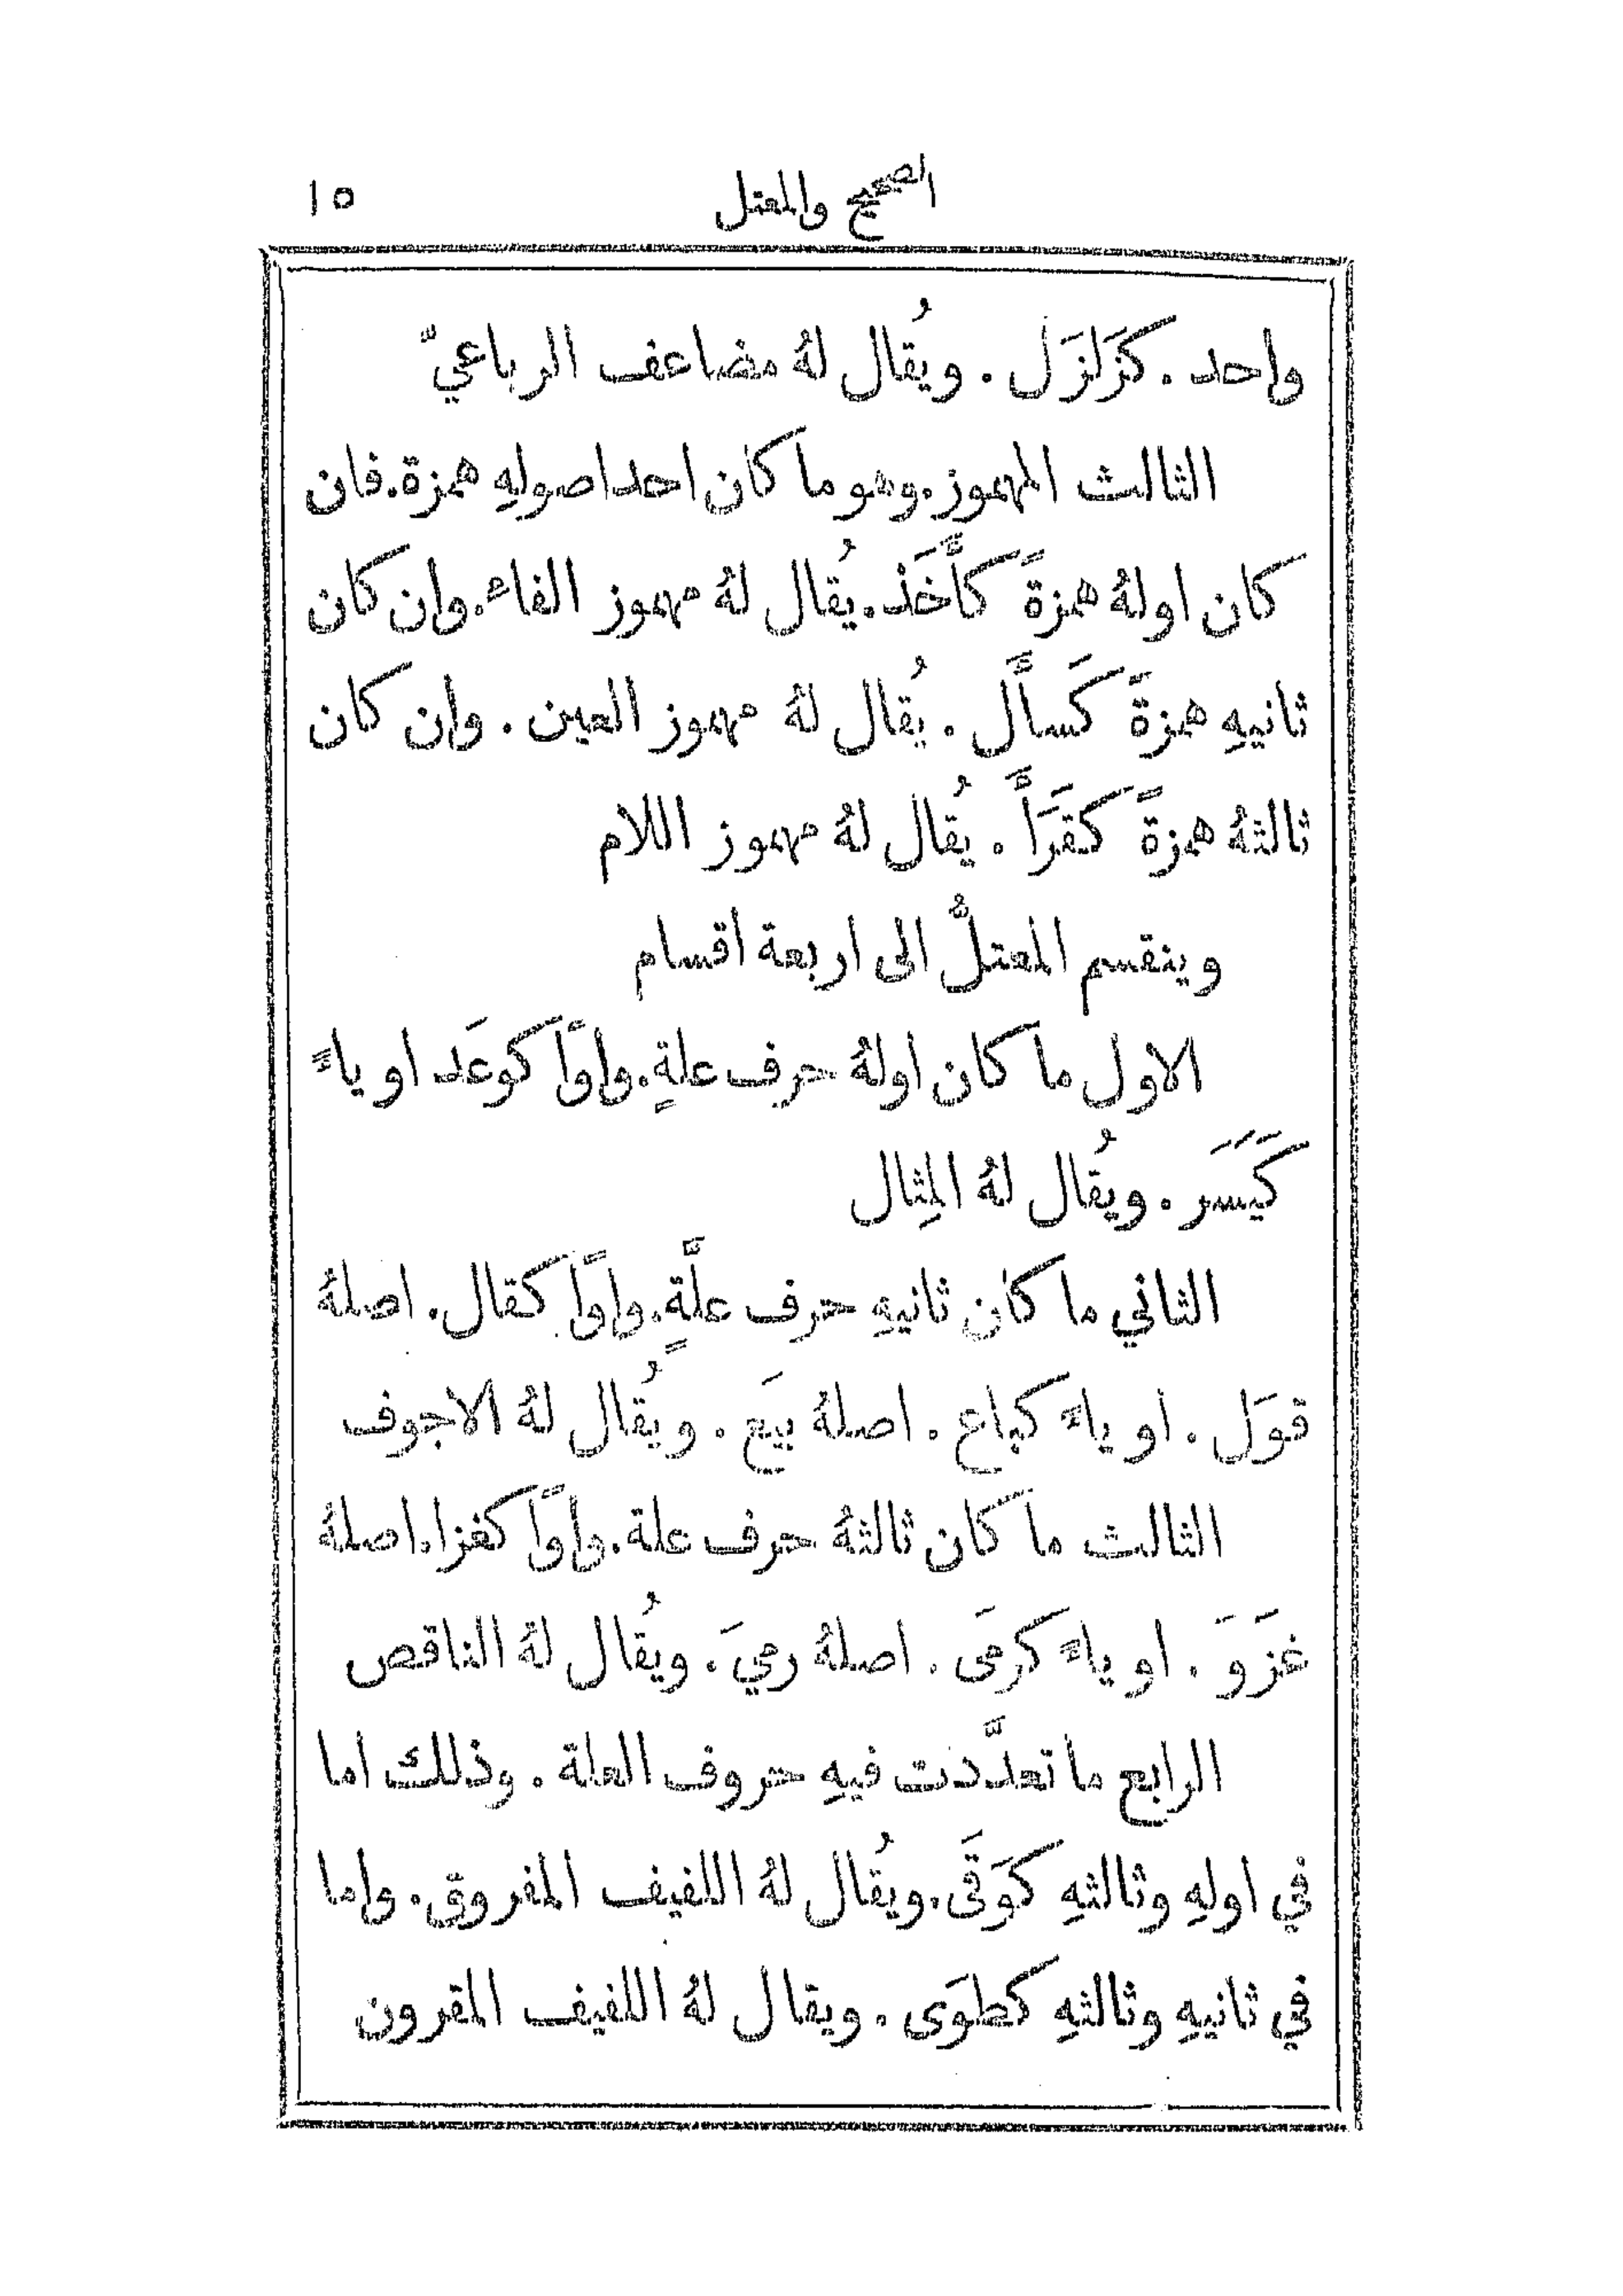 الصحيح والمعتل ١٥
واحد . كَزَلزَل . ويُقال لهُ مضاعف الرباعيّ
الثالث المهموز. وهو ما كان احد اصولهِ همزة. فان
كان اولهُ همزةً كأَخَذ. يُقال لهُ مهموز الفاء. وان كان
ثانيهِ همزةً كَسأَل . يُقال لهُ مهموز العين . وان كان
ثالثهُ همزةً كقَرَأَ . يُقال لهُ مهموز اللام
وينقسم المعتلُّ الى اربعة اقسام
الاول ما كان اولهُ حرف علةٍ. واوًا كوعَد او ياءً
كَيَسَر . ويُقال لهُ المِثال
الثاني ما كان ثانيهِ حرف علَّةٍ. واوًا كقال. اصلهُ
قوَل . او ياءً كباع . اصلهُ بيَع . ويُقال لهُ الاجوف
الثالث ما كان ثالثهُ حرف علة. واوًا كغزا. اصلهُ
غزَوَ . او ياءً كرمَى . اصلهُ رميَ . ويُقال لهُ الناقص
الرابع ما تعدَّدت فيهِ حروف العلة . وذلك اما
في اولهِ وثالثهِ كوَقَى. ويُقال لهُ اللفيف المفروق. واما
في ثانيهِ وثالثهِ كطوَى . ويقال لهُ اللفيف المقرون